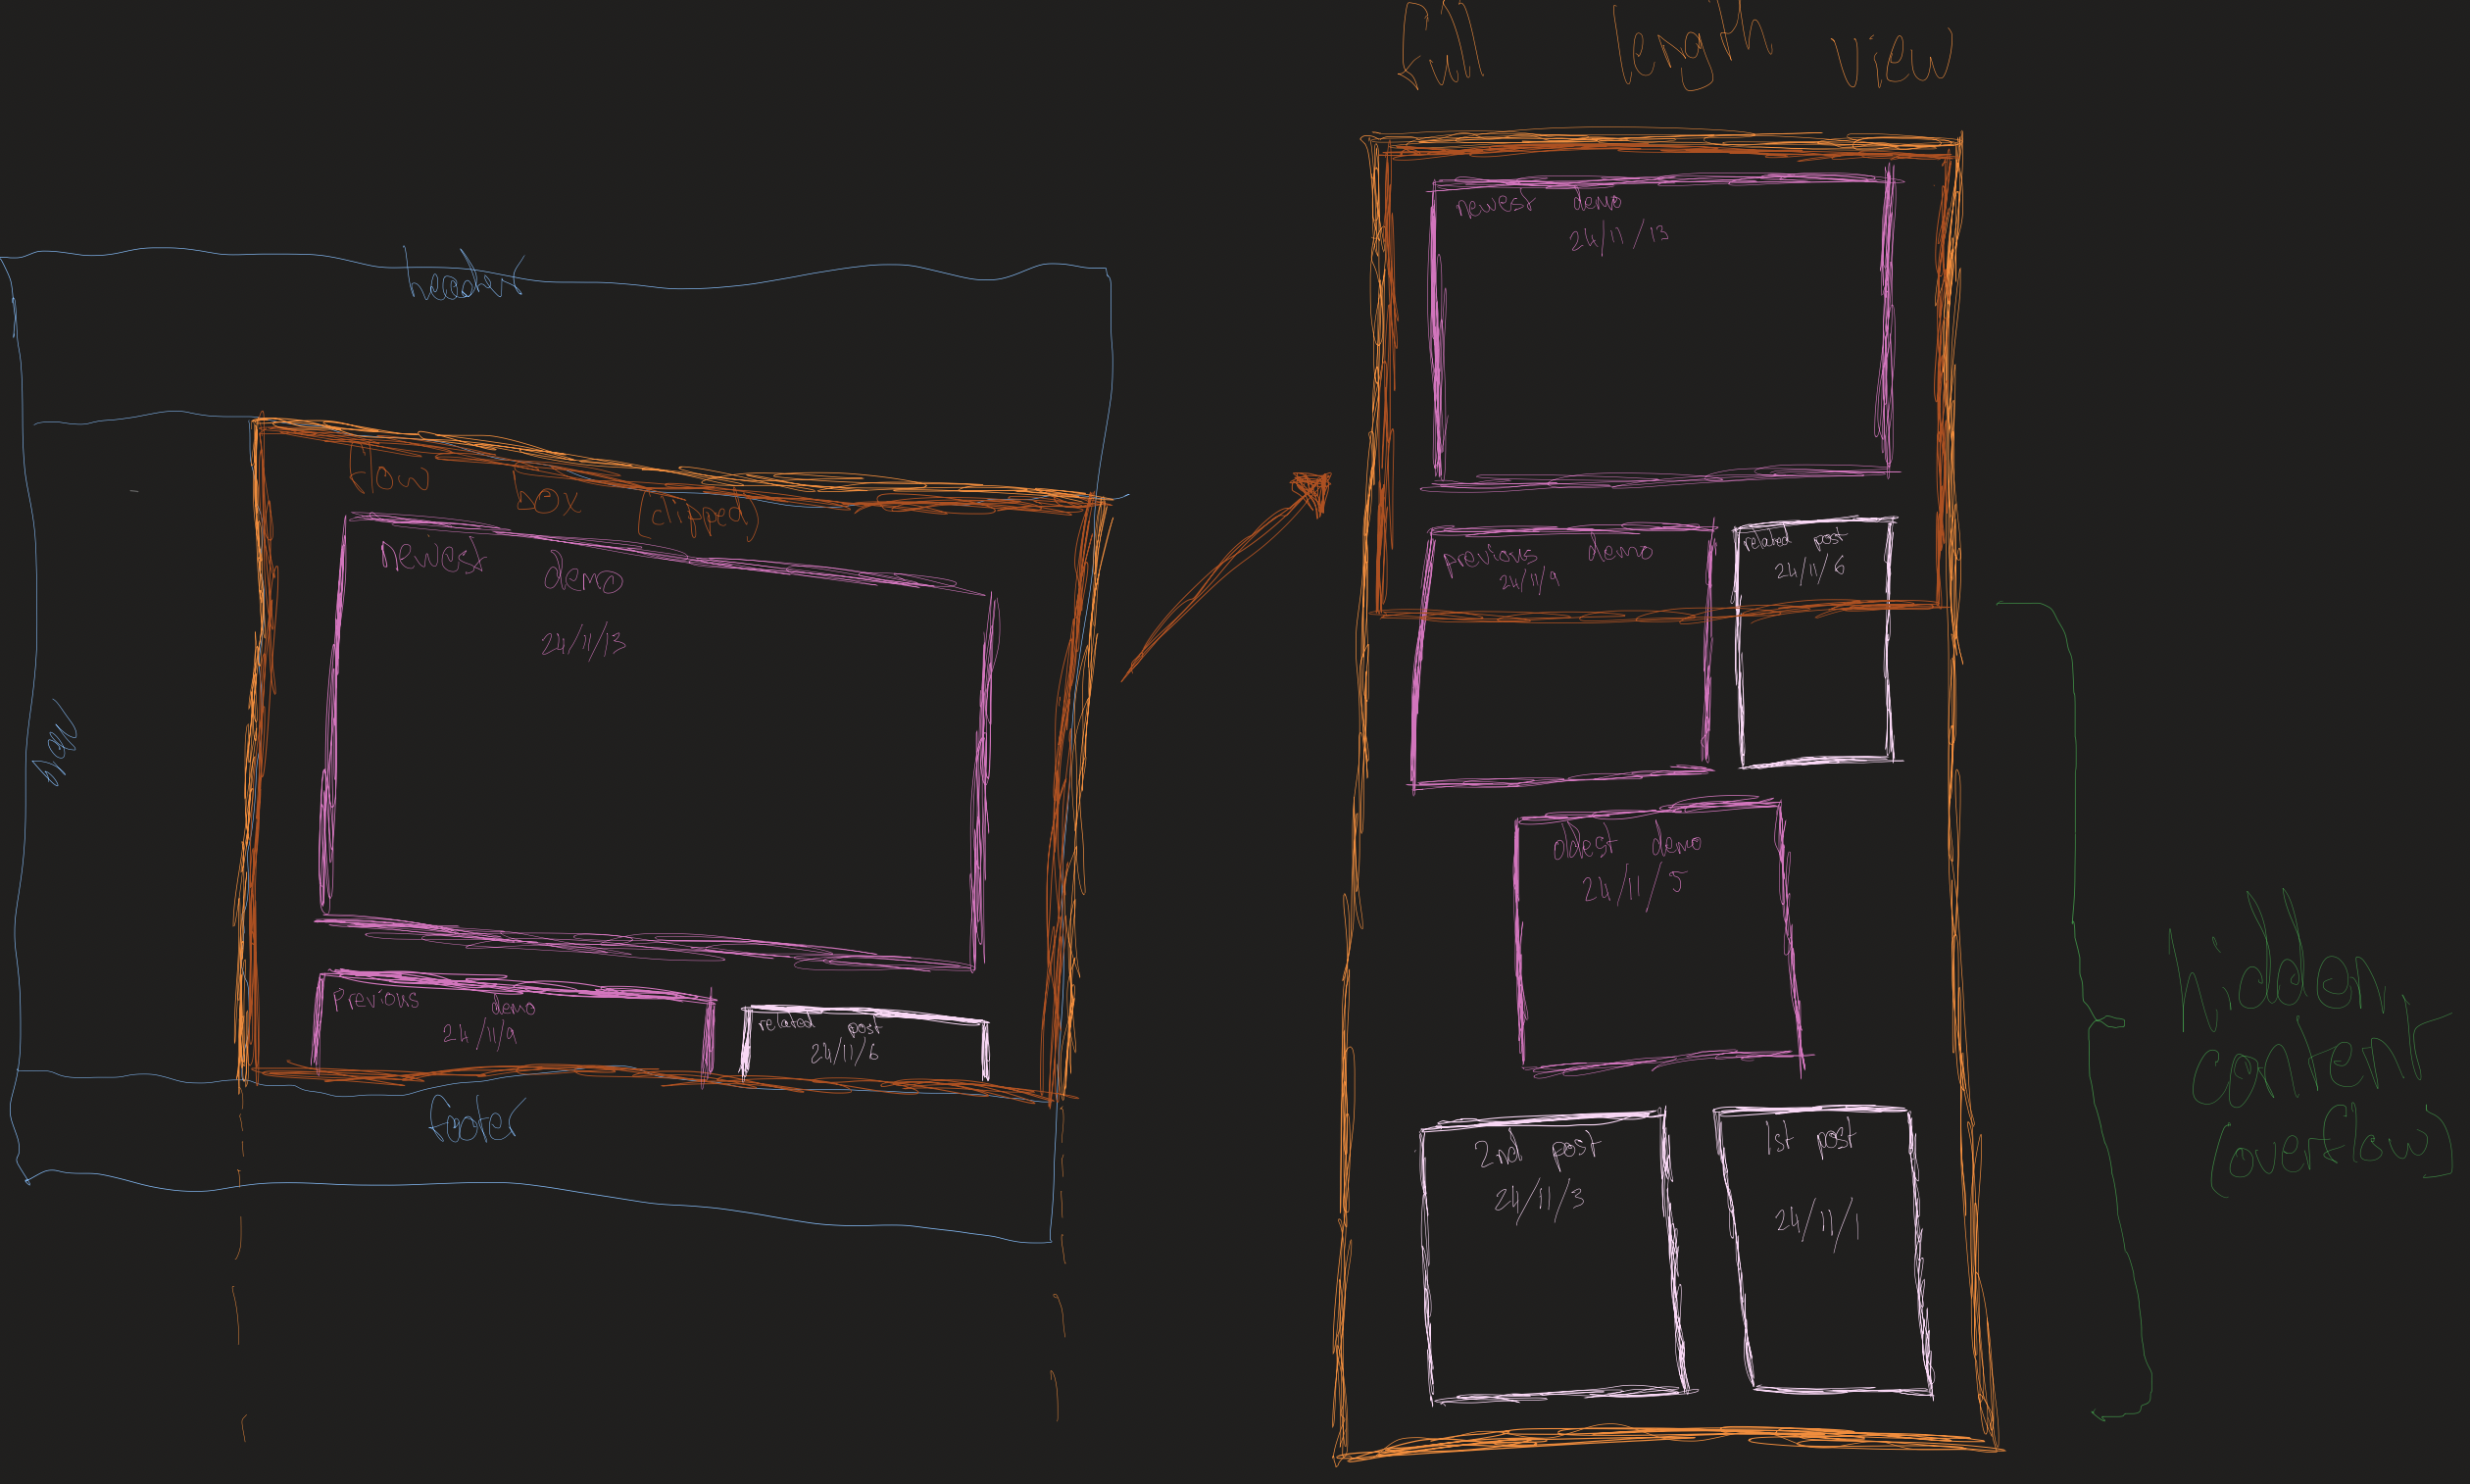 header
nav
flow box (clipped)
newest demo
24/11/13
previous demo
24/11/9
related post
24/11/6
footer
full length view
newest demo
24/11/13
previous demo
24/11/9
related post
24/11/6
oldest demo
24/11/5
2nd post
24/11/3
1st post
24/11/1
hidden
content
(overflow)